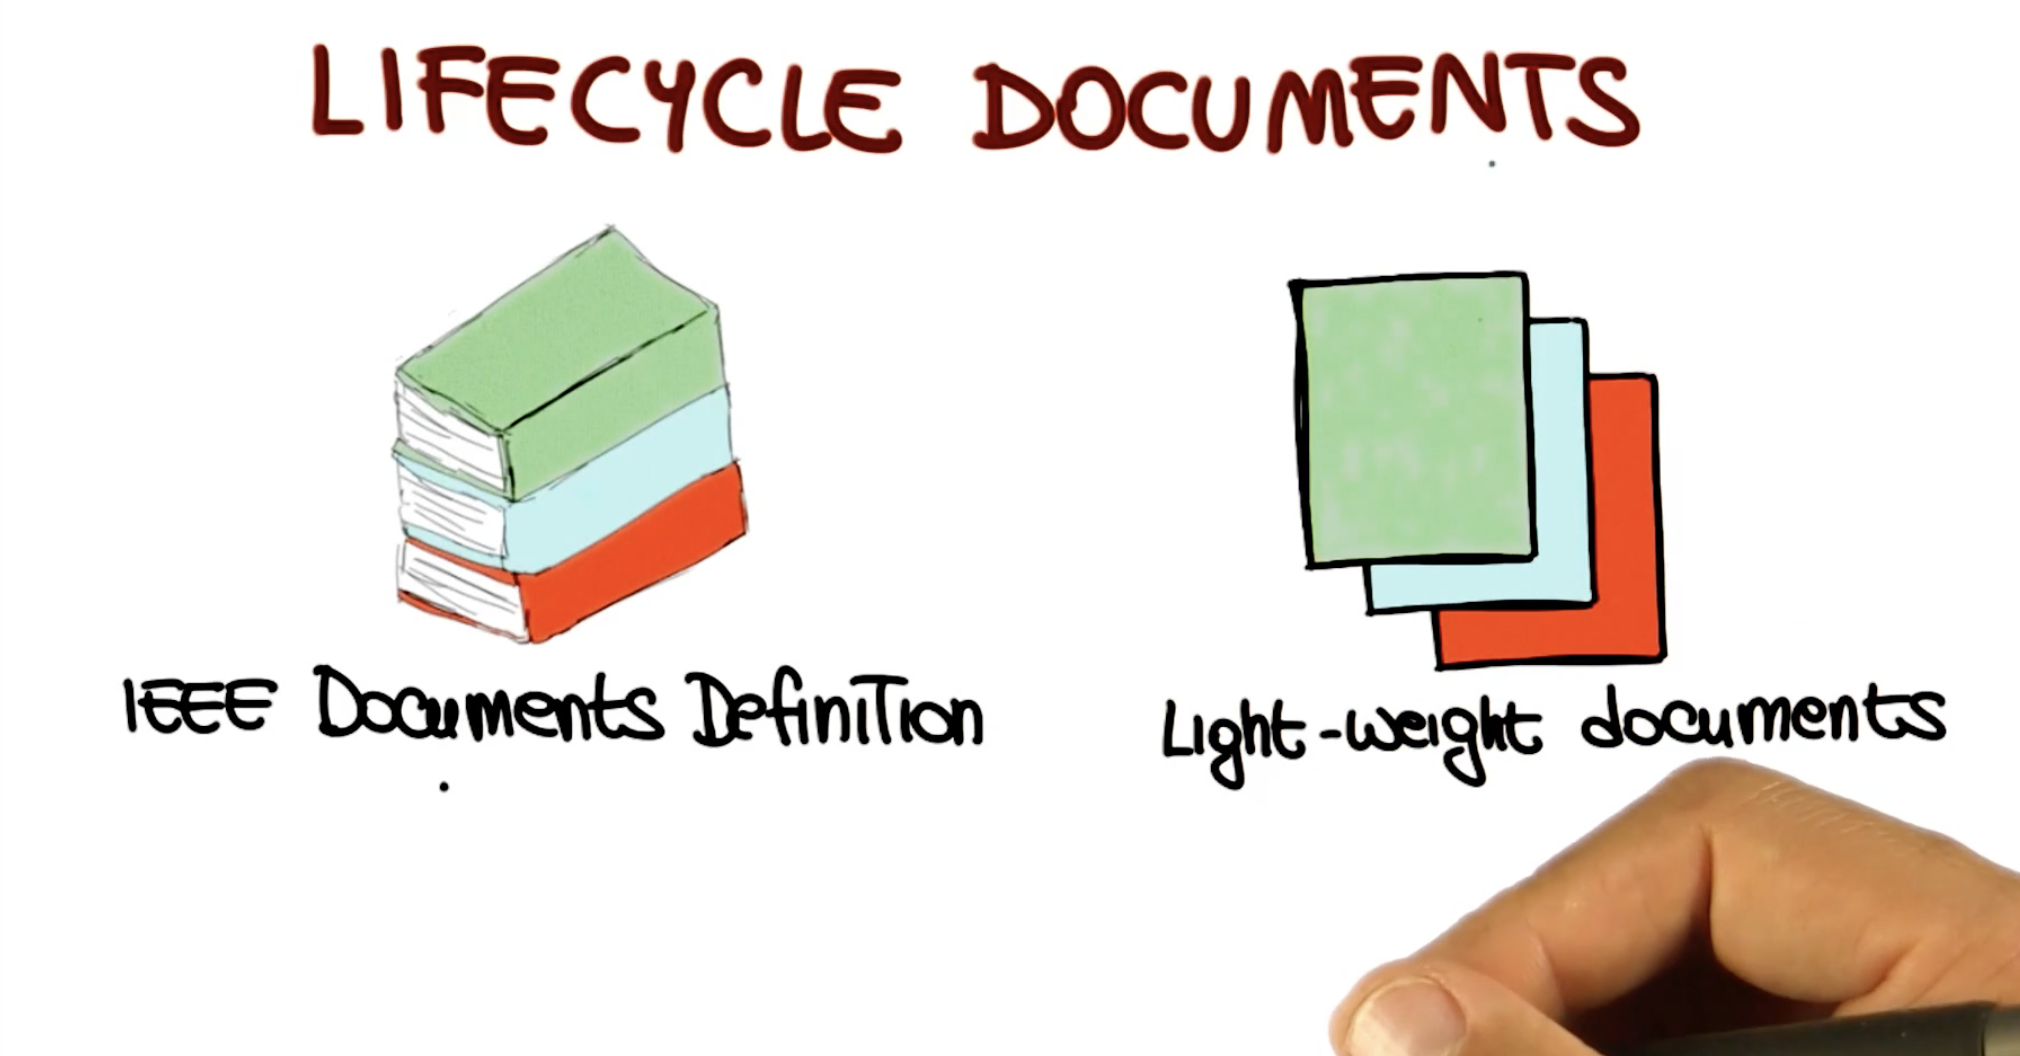 LIFECYCLE DOCUMENTS
IEEE Documents Definition
Light-weight documents